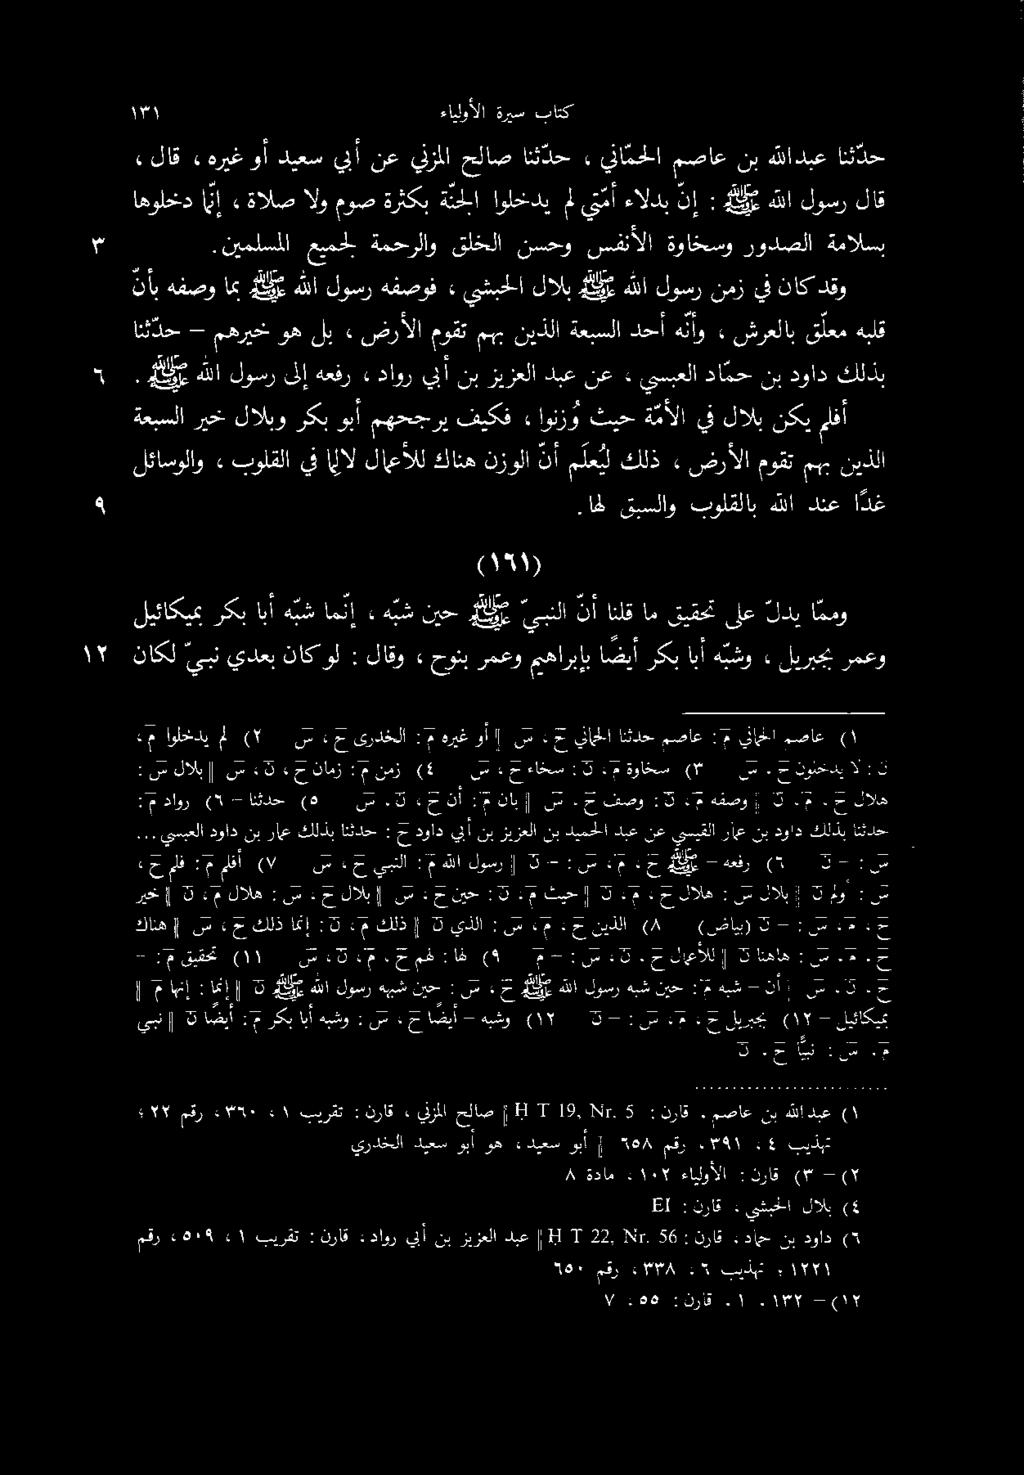 كتاب سيرة الأولياء ١٣١
حدّثنا عبدالله بن عاصم الحمّاني ، حدّثنا صالح المزني عن أبي سعيد أو غيره ، قال ،
قال رسول الله ﷺ : إنّ بدلاء أمّتي لم يدخلوا الجنّة بكثرة صوم ولا صلاة ، إنّما دخلوها
بسلامة الصدور وسخاوة الأنفس وحسن الخلق والرحمة لجميع المسلمين. ٣
وقد كان في زمن رسول الله ﷺ بلال الحبشي ، فوصفه رسول الله ﷺ بما وصفه بأنّ
قلبه معلّق بالعرش ، وأنّه أحد السبعة الذين بهم تقوم الأرض ، بل هو خيرهم – حدّثنا
بذلك داود بن حمّاد العبسي ، عن عبد العزيز بن أبي رواد ، رفعه إلى رسول الله ﷺ . ٦
أفلم يكن بلال في الأمّة حيث وُزنوا ، فكيف يرجحهم أبو بكر وبلال خير السبعة
الذين بهم تقوم الأرض ، ذلك ليُعلَم أنّ الوزن هناك للأعمال لا لِما في القلوب ، والوسائل
غدًا عند الله بالقلوب والسبق لها . ٩
(١٦١)
وممّا يدلّ على تحقيق ما قلنا أنّ النبيّ ﷺ حين شبّه ، إنّما شبّه أبا بكر بميكائيل
وعمر بجبريل ، وشبّه أبا بكر أيضًا بإبراهيم وعمر بنوح ، وقال : لو كان بعدي نبيّ لكان ١٢
١) عاصم الحماني م : عاصم حدثنا الحماني ح ، س ‖ أو غيره م : الخدرى ح ، س ٢) لم يدخلوا م ،
ن : لا يدخلون ح . س ٣) سخاوة م ، ن : سخاء ح ، س ٤) زمن م : زمان ح ، ن ، س ‖ بلال س :
هلال ح . م . ن ‖ وصفه م ، ن : وصف ح . س ‖ بان م : أن ح ، ن . س ٥) حدثنا – ٦) رواد م :
حدثنا بذلك داود بن عمار القيسي عن عبد الحميد بن عبد العزيز بن أبي داود ح : حدثنا بذلك عمار بن داود العبسي...
س : – ن ٦) رفعه – ﷺ ح ، م ، س : – ن ‖ رسول الله م : النبي ح ، س ٧) أفلم م : فلم ح ،
س : أولم ن ‖ بلال س : هلال ح . م . ن ‖ حيث م ، ن : حين ح . س ‖ بلال ح . س : هلال م ، ن ‖ خير
ح ، م . س : – ن (بياض) ٨) الذين ح ، م ، س : الذي ن ‖ ذلك م ، ن : إنما ذلك ح ، س ‖ هناك
ح . م . س : هاهنا ن ‖ للأعمال ح . ن . س : – م ٩) لها : لهم ح . م ، ن ، س ١١) تحقيق م : –
ح . ن . س ‖ أن – شبه م : حين شبه رسول الله ﷺ ح ، س : حين شبه رسول الله ﷺ ن ‖ إنما : إنها م ‖
بميكائيل – ١٢) بجبريل ح . م ، س : – ن ١٢) وشبه – أيضا ح ، س : وشبه أبا بكر م : أيضًا ن ‖ نبي
م . س : نبيًّا ح . ن
١) عبدالله بن عاصم . قارن : H T 19, Nr. 5 ‖ صالح المزني ، قارن : تقريب ١ ، ٣٦٠ ، رقم ٢٢ ؛
تهذيب ٤ ، ٣٩١ ، رقم ٦٥٨ ‖ أبو سعيد ، هو أبو سعيد الخدري
٢) – ٣) قارن : الأولياء ١٠٢ ، مادة ٨
٤) بلال الحبشي ، قارن : EI
٦) داود بن حماد ، قارن : H T 22, Nr. 56 ‖ عبد العزيز بن أبي رواد ، قارن : تقريب ١ ، ٥٠٩ ، رقم
١٢٢١ ؛ تهذيب ٦ ، ٣٣٨ ، رقم ٦٥٠
١٢) – ١٣٢ ، ١ . قارن : ٥٥ ، ٧